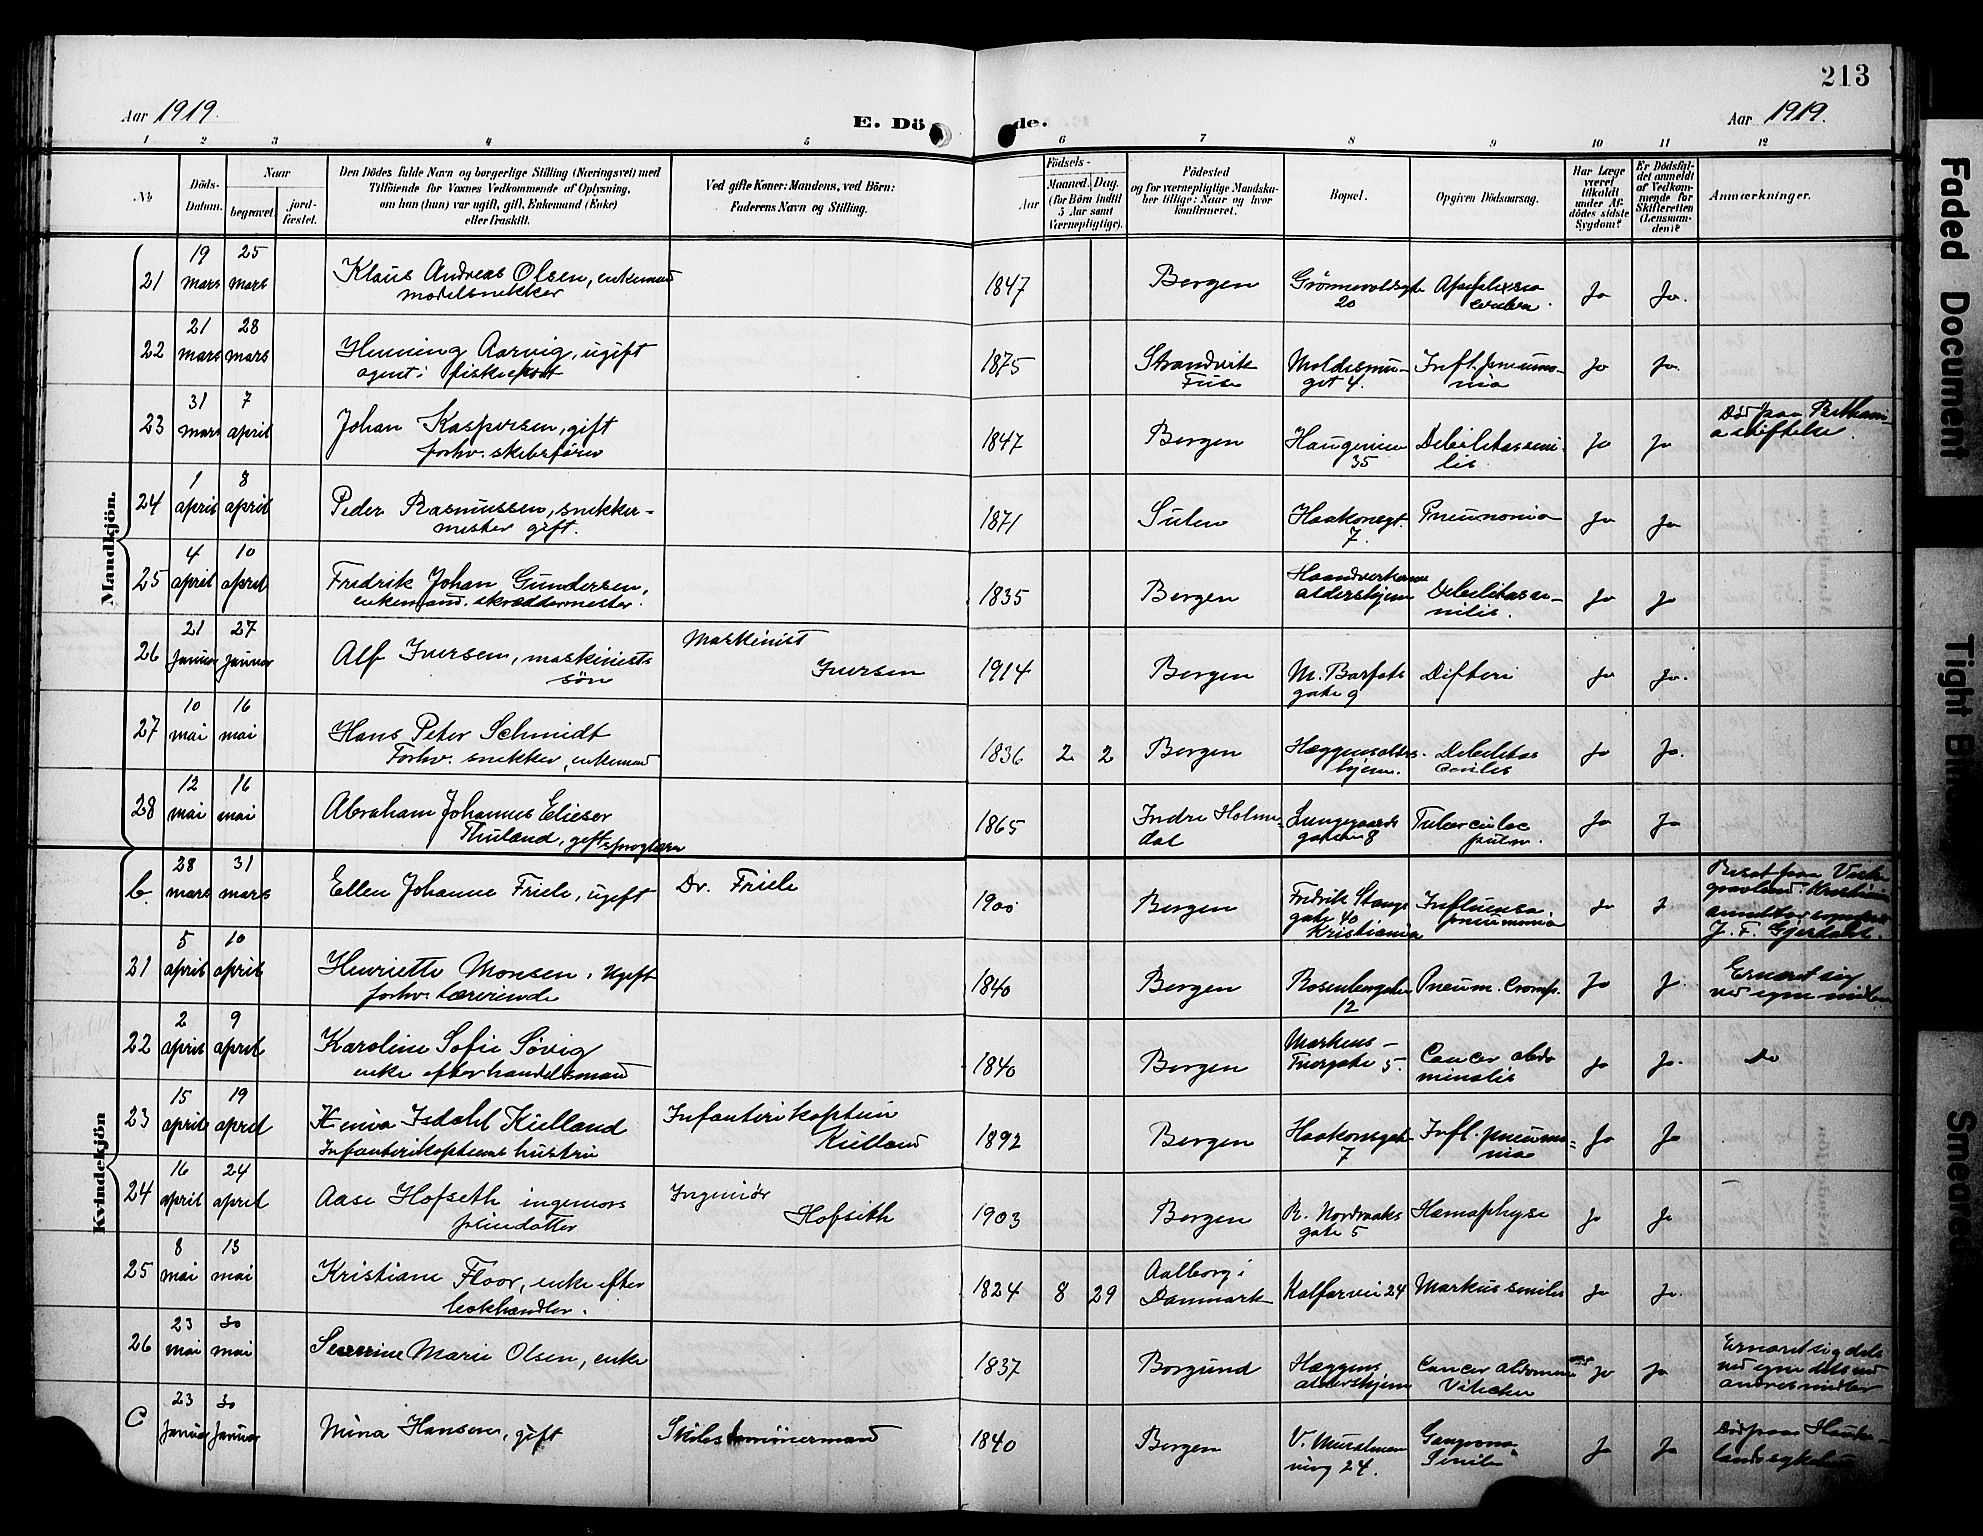 213
Aar 1919.
E. Dö de.
Aar 1919.
1 2 3 4 5 6 7 8 9 10 11 12
No.
Döds-Datum.
Naar
begravet.
jord-fæstet.
Den Dödes fulde Navn og borgerlige Stilling (Næringsvei) med
Tilföiende for Voxnes Vedkommende af Oplysning,
om han (hun) var ugift, gift, Enkemand (Enke)
eller fraskilt.
Ved gifte Koner: Mandens, ved Börn:
Faderens Navn og Stilling.
Födsels-
Aar
Maaned.
Dag.
(for Börn indtil
5 Aar samt
Værnepligtige).
Födested
og for værnepligtige Mandska-
ber tillige: Naar og hvor
konfirmeret.
Bopæl.
Opgiven Dödsaarsag.
Har Læge
været
tilkaldt
under Af-
dödes sidste
Sygdom?
Er Dödsfal-
det anmeldt
af Vedkom-
mende for
Skifteretten
(Lensman-
den)?
Anmærkninger.
Mandkjön.
21 19 mars 25 mars Klaus Andreas Olsen, enkemand
modelsnekker
1847 Bergen Grønnevoldsgt 20 Apoplexia Ja Ja.
22 21 mars 28 mars Henning Aarvig, ugift
agent i
1875 Strandvik Fuse 4. Infl. pneumo-nia Ja Ja.
23 31 mars 7 april Johan Kaspersen, gift
forhv. skibsfører
1847 Bergen Haugeveien 35 Debilitas seni-lis Ja Ja Død paa Bethani-a stiftelse.
24 1 april 8 april Peder Rasmussen, snekker-
mester gift.
1871 Sulen Haakonsgt. 7. Pneumonia Ja Ja
25 4 april 10 april Fredrik Johan Gundersen,
enkemand. skræddermester.
1835 Bergen Haandverkernes aldershjem Debilitas se-nilis. Ja Ja
26 21 Januar 27 januar Alf Iversen, maskinists
søn
Maskinist
Iversen
1914 Bergen M. Barfots gate 9 Difteri Ja Ja.
27 10 mai 16 mai Hans Peter Schmidt
Forhv. snekker, enkemand
1836 2 2 Bergen Hæggensalders-hjem. Debilitas senilis Ja Ja.
28 12 mai 16 mai Abraham Johannes Elieser
Thuland, gift, sproglærer
1865 Indre Holme-dal Lungegaards gaten 8 Tuberculos pulm. Ja Ja
Kvindekjön
b. 28 mars 31 mars Ellen Johanne Friele, ugift
Dr. Friele
1900 Bergen Fredrik Stangs gate 40 Kristiania Influensa pneumonia Ja J
21 5 april 10 april Henriette Monsen, ugift
forhv. lærerinde
1840 Bergen Rosenbergsgaten 12 Pneum. Croup. Ja J. Ernæret sig ved egne midler
22 2 april 9 april Karoline Sofie Søvig
enke efter handelsmand
1840 Bergen Markens- 5. Cancer abdo minalis Ja Ja. Do
23 15 april 19 april Isdahl Kielland
Infanterikapteins hustru
Infanterikaptein
Kielland
1892 Bergen Haakonsgate 7 Infl. pneumo-nia Ja Ja
24 16 april 24 april Aase Hofseth ingeniørs
pleiedatter
Ingeniør
Hofseth
1903 Bergen R. Nordraaks gate 5 Hæmophyse Ja Ja
25 8 mai 13 mai Kristiane Floor, enke efter
bokhandler.
1824 8 29 Aalborg i Danmark Kalfarvei 24 Markus senilis Ja Ja.
26 23 mai 30 mai Severine Marie Olsen, enke
1837 Borgund Hæggens aldershjem Cancer abdomen Ja Ja Ernæret sig dels ved egne dels ved andres midler
C 23 Januar 30 Januar Nina Hansen, gift
Skibstømmermand
1840 Bergen V. 24. Senilis Ja Ja Død paa Hauke-landsykehus
Faded Document
Tight Bin
Smeared